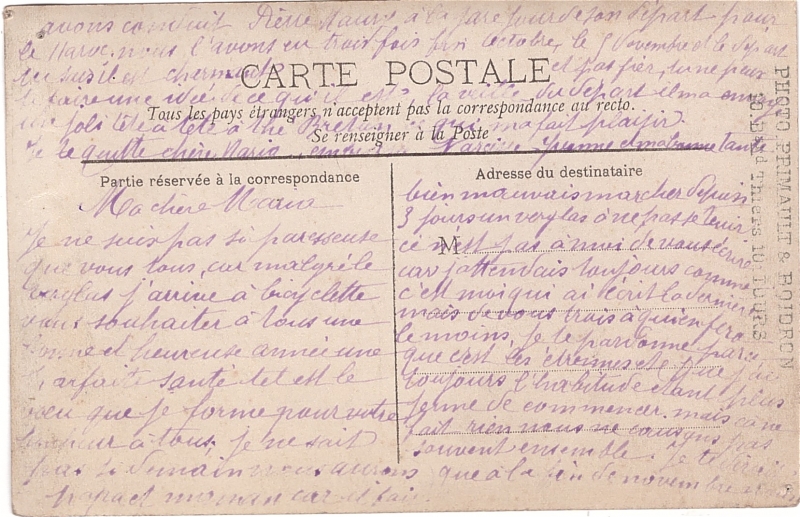 Ma chère Maria
Je ne suis pas si paresseuse
que vous tous, car malgré le
verglas j'arrive à bicyclette
vous souhaiter à tous une
bonne et heureuse année une
parfaite santé tel est le
voeu que je forme pour votre
bonheur à tous, je ne sait
pas si demain nous aurons
papa et maman car il fait
bien mauvais marcher depuis
3 jours un verglas à ne pas se tenir
ce n'est pas à moi de vous écrire
car j'attendais toujours comme
c'est moi qui ai écrit la dernière
mais de vous trois à qui en fera
le moins, je te pardonne parce
que c'est les étrennes et que j'ai
toujours l'habitude étant plus
jeune de commencer. mais ça ne
fait rien nous ne causons pas
souvent ensemble. Je te dirai
que à la fin de novembre nous
avons conduit Pierre à la gare jour de son départ pour
le Maroc, nous l'avons eu trois fois fin octobre, le 5 novembre et le départ
il est charmant et pas fier, tu ne peux
te faire une idée de ce qu'il est, la veille du départ il m'a
une jolie tête à tête à thé qui m'a fait plaisir.
Je te quitte chère Maria, Narcisse Yvonne et ma bonne tante
CARTE POSTALE
Tous les pays étrangers n'acceptent pas la correspondance au recto.
Se renseigner à la Poste
Partie réservée à la correspondance
Adresse du destinataire
M
PHOTO PRIMAULT & BOIDRON
Bd Thiers TOURS